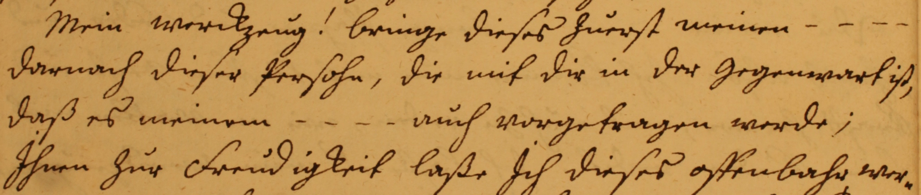 Mein werckzeug! bringe dieses zuerst meinen - - - -
darnach dieser Persohn, die mit dir in der Gegenwart ist,
daß es meinem - - - - auch vorgetragen werde;
Ihnen zur Freudigkeit laße Ich dieses offenbahr wer-